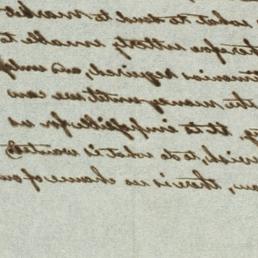 what to send to make
therefore utterly unable to
is required, and
the money until we can
It is impossible for us
to do what is wanted
there is no chance of our